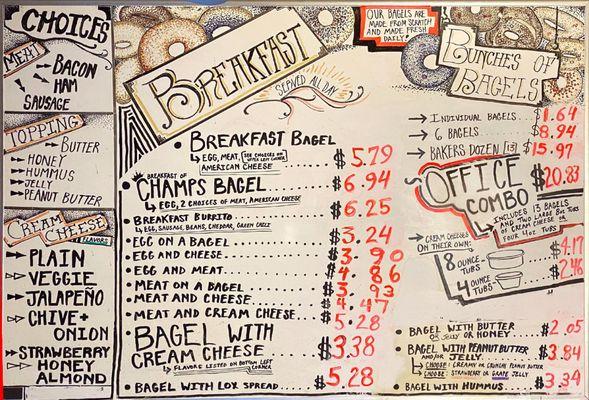 CHOICES
MEAT
BACON
HAM
SAUSAGE
TOPPING
BUTTER
HONEY
HUMMUS
JELLY
PEANUT BUTTER
CREAM CHEESE
FLAVORS
PLAIN
VEGGIE
JALAPEÑO
CHIVE +
ONION
STRAWBERRY
HONEY
ALMOND
BREAKFAST
SERVED ALL DAY
BREAKFAST BAGEL
EGG, MEAT, [SEE CHOICES ON UPPER LEFT CORNER]
AMERICAN CHEESE ..... $5.79
BREAKFAST OF
CHAMPS BAGEL ..... $6.94
EGG, 2 CHOICES OF MEAT, AMERICAN CHEESE
BREAKFAST BURRITO ..... $6.25
EGG, SAUSAGE, BEANS, CHEDDAR, GREEN CHILE
EGG ON A BAGEL ..... $3.24
EGG AND CHEESE ..... $3.90
EGG AND MEAT ..... $4.86
MEAT ON A BAGEL ..... $3.93
MEAT AND CHEESE ..... $4.47
MEAT AND CREAM CHEESE ..... $5.28
BAGEL WITH
CREAM CHEESE ..... $3.38
FLAVORS LISTED ON BOTTOM LEFT
CORNER
BAGEL WITH LOX SPREAD ..... $5.28
OUR BAGELS ARE
MADE FROM SCRATCH
AND MADE FRESH
DAILY!
BUNCHES OF
BAGELS
INDIVIDUAL BAGELS ..... $1.64
6 BAGELS ..... $8.94
BAKERS DOZEN [13] ..... $15.97
OFFICE
COMBO
$20.83
INCLUDES 13 BAGELS
AND TWO LARGE 8oz TUBS
OF CREAM CHEESE OR
FOUR 4oz TUBS
CREAM CHEESES
ON THEIR OWN:
8 OUNCE
TUBS ..... $4.17
4 OUNCE
TUBS ..... $2.46
BAGEL WITH BUTTER
OR JELLY OR HONEY ..... $2.05
BAGEL WITH PEANUT BUTTER
AND/OR JELLY ..... $3.84
CHOOSE: CREAMY OR CRUNCHY PEANUT BUTTER
CHOOSE: STRAWBERRY OR GRAPE JELLY
BAGEL WITH HUMMUS ..... $3.34